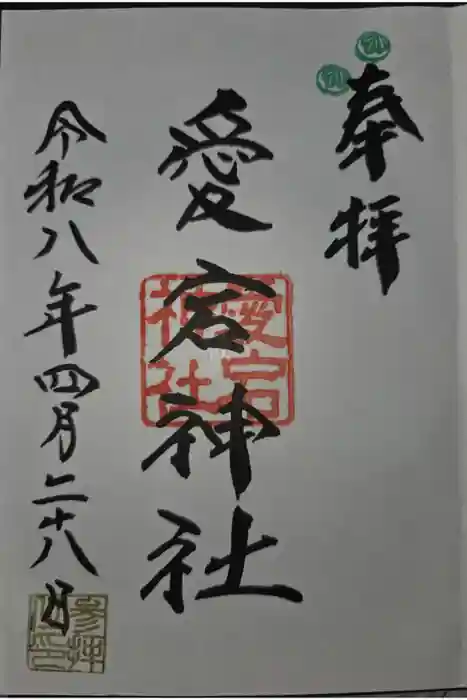 奉拝
愛宕神社
愛宕神社
令和八年四月二十八日
参拝